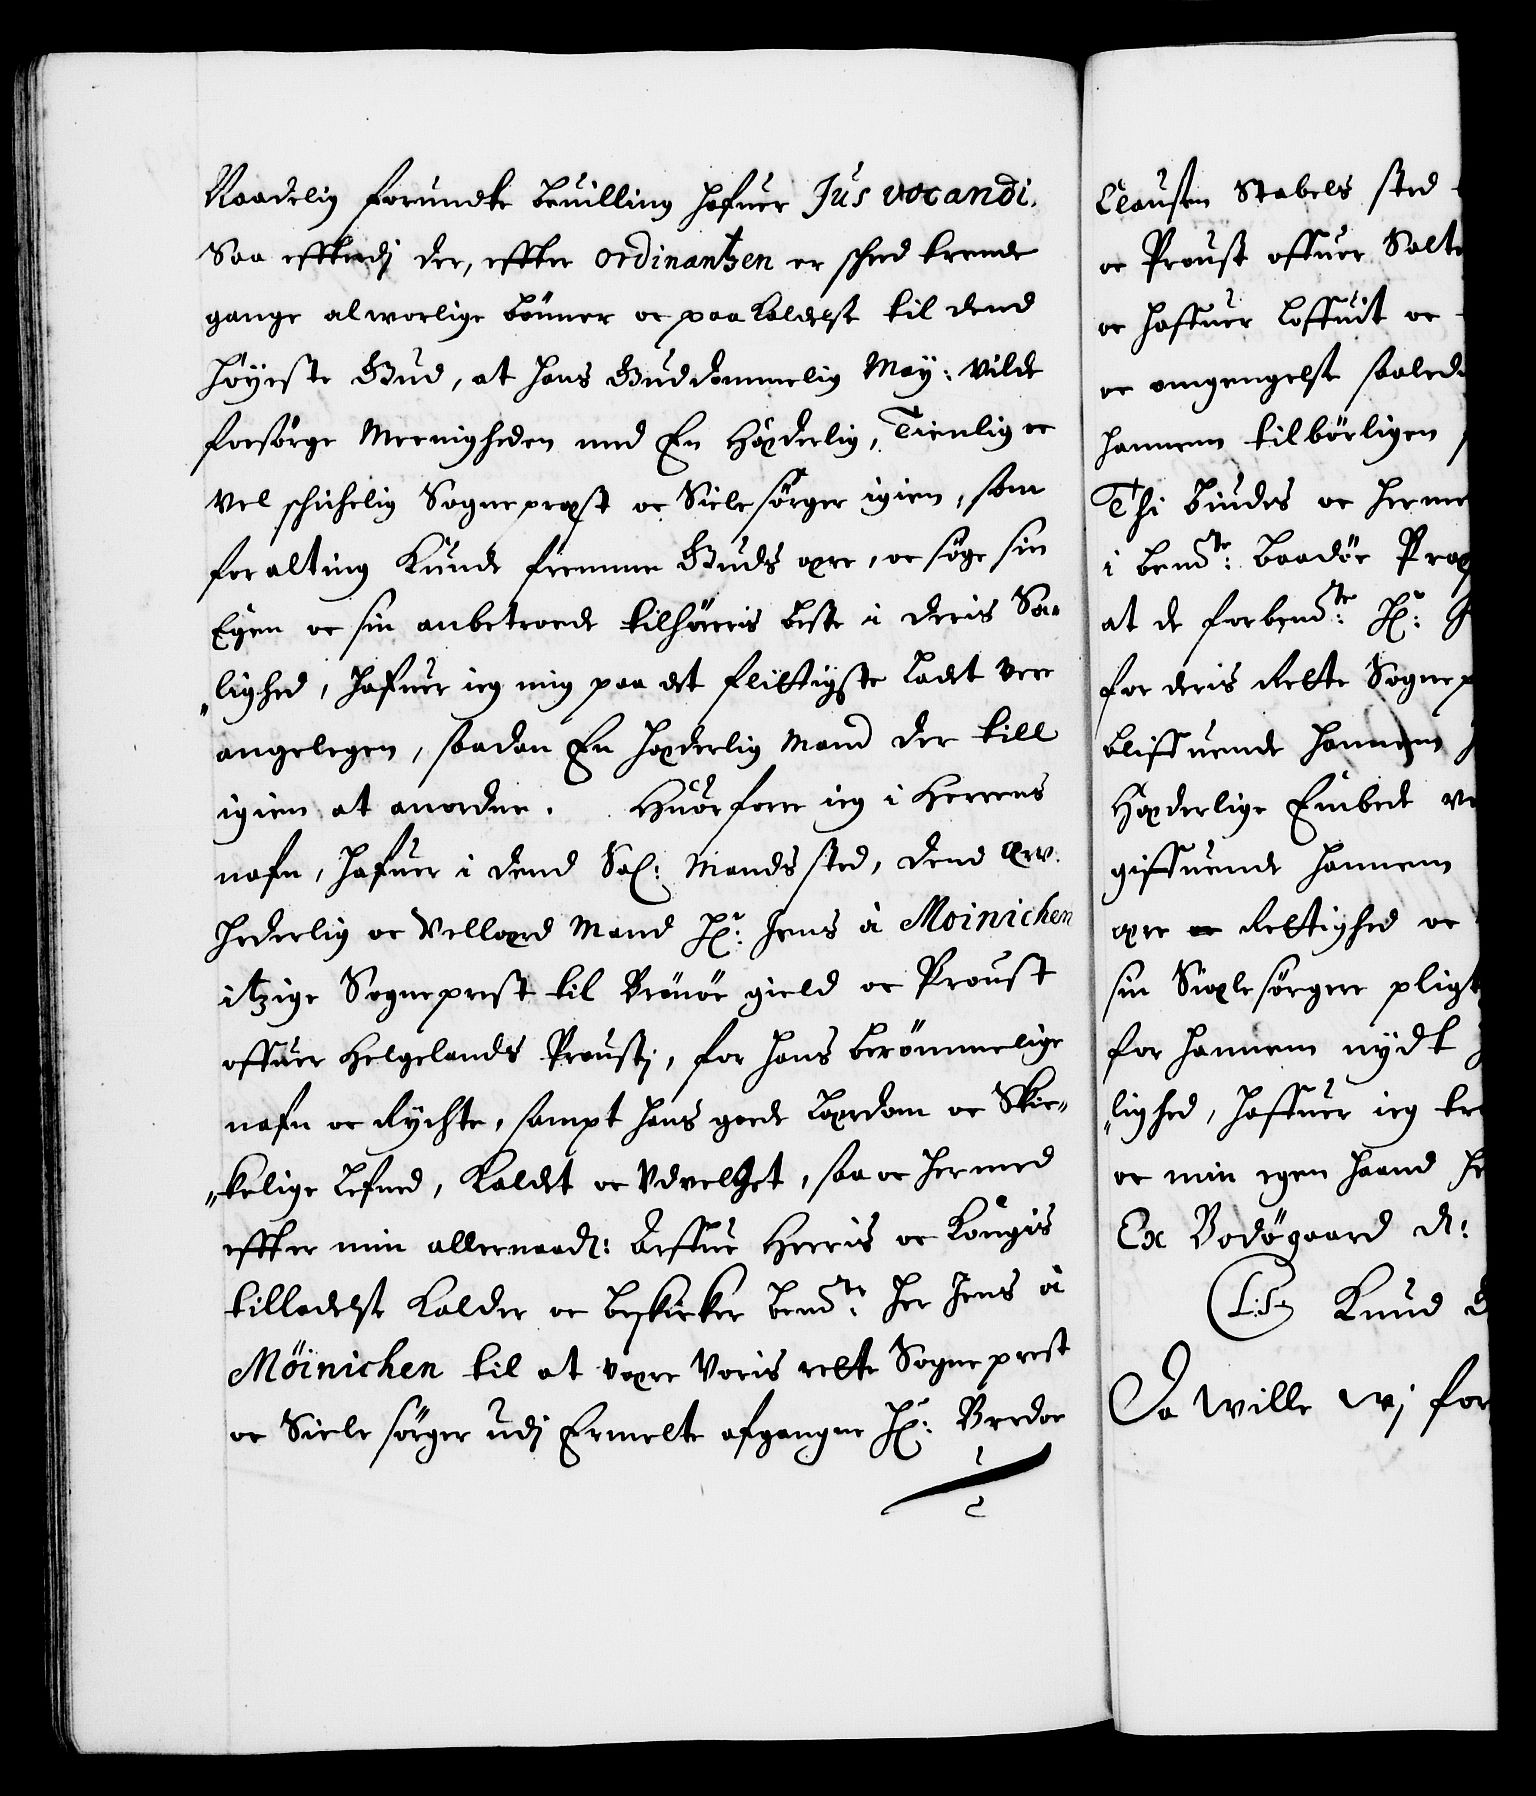 Naadelig forundte beuilling hafuer Jus vocandi.
Saa efftterdj der, effter ordinantzen er scheed trende
gange alworlige bönner oc paakaldelse til dend
höyeste Gud, at hans Guddommelig May: vilde
forsörge Meenigheden med En Hæderlig, Tienlig oc
vel schichelig Sogneprest oc Siele sörger igien, som
for alting kunde fremme Guds ære, oc söge sin
Egen oc sin anbetroede tilhöreris beste i deris Sa-
„lighed, hafuer ieg mig paa det flittigste ladet vere
angelegen, saadan En hæderlig Mand der till
igien at anordne. Huorfore ieg i Herrens
nafn, hafuer i dend Sal: Mands sted, dend ærv.
hederlig oc Vellærd Mand Hr: Jens à Moinichen
itzige Sogneprest til Brönöe gield oc Proust
offuer Helgelands Proustj, for hans berömmelige
nafn oc Rychte, sampt hans goede Lærdom oc Skic-
„kelige Lefned, Kaldet oc Vdvelget, saa oc hermed
effter min allernaad: Arffue Herris oc Kongis
tilladelse Kalder oc beskicker bemte: Her Jens à
Möinichen til at være Voris rette Sogneprest
oc Siele sörger udj Ermelte afgangne Hr: Bredoe
Clausen Stabels sted
oc Proust offuer Salt
oc haffuer loffuit oc
oc omgengelse saaled
hannem tilbörligen
Thi biudes oc herme
i bemte: Baadöe Præ
at de forbemte: Hr:
for deris Rette Sognep
bliffuende hannem
Hæderlige Embede
giffuende hannem
ære oc Rettighed oc
sin Siælesörgere pligt
for hannem nydt
„lighed, haffuer ieg
oc min egen haand
Ex Bodögaard d:
(L:S) Knud
Da wille wj for